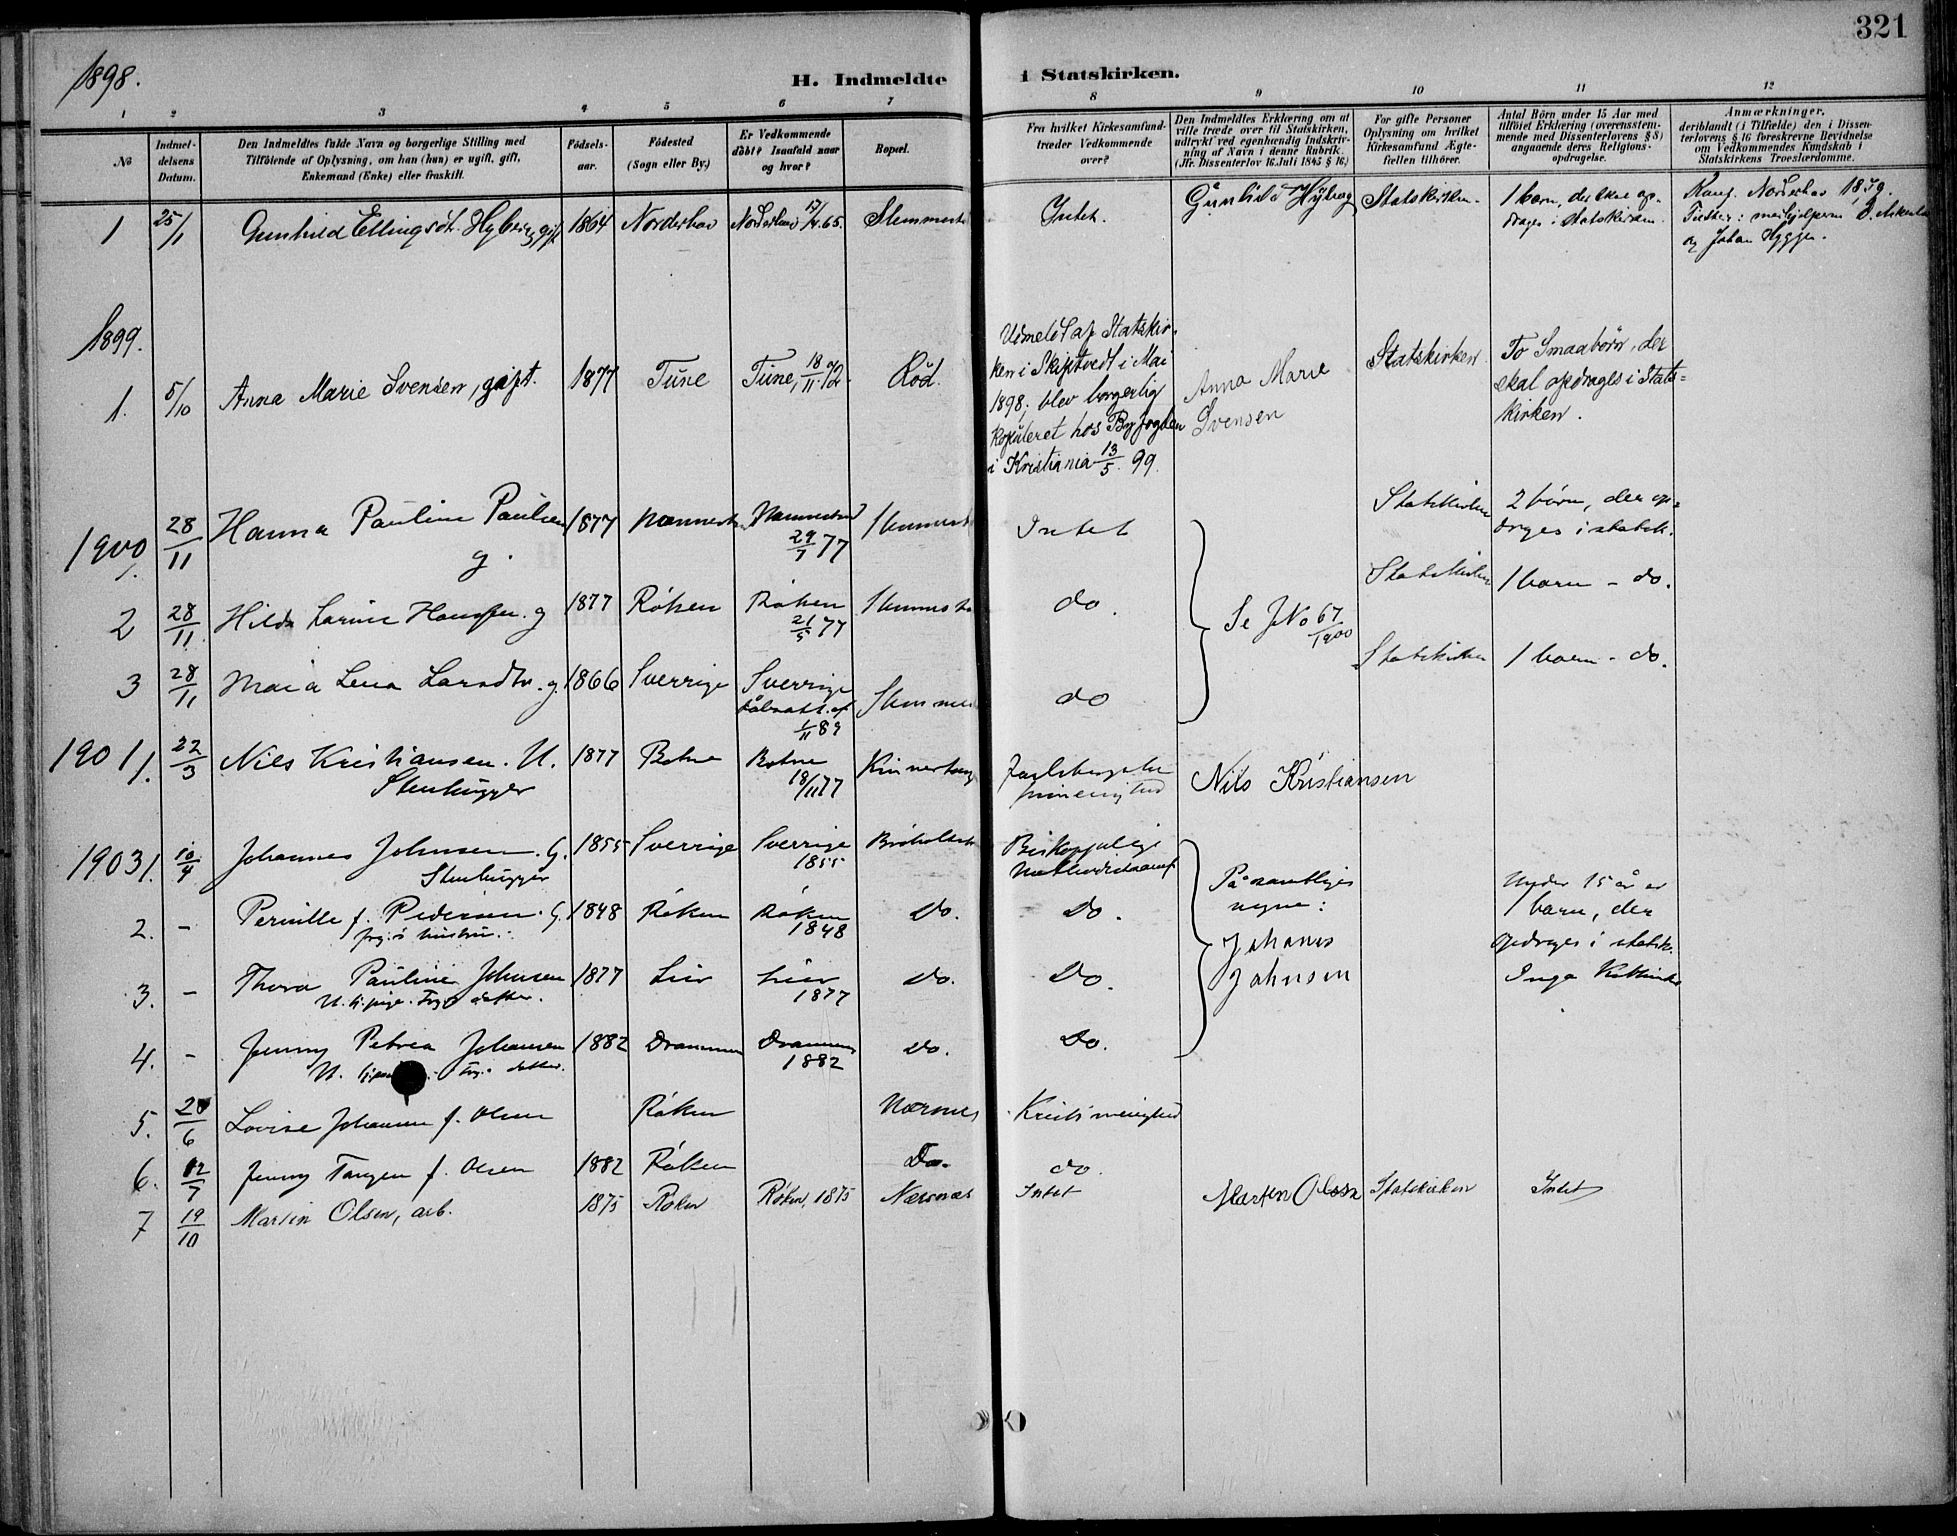 321
1898.
H. Indmeldte i Statskirken.
1 2 3 4 5 6 7 8 9 10 11 12
No
Indmel-
delsens
Datum.
Den Indmeldtes fulde Navn og borgerlige Stilling med
Tilføiende af Oplysning, om han (hun) er ugift, gift,
Enkemand (Enke) eller fraskilt.
Fødsels-
aar.
Fødested
(Sogn eller By.)
Er Vedkommende
døbt? Isaafald naar
og hvor?
Bopæl.
Fra hvilket Kirkesamfund-
træder Vedkommende
over?
Den Indmeldtes Erklæring om at
ville træde over til Statskirken,
udtrykt ved egenhændig Indskriv-
ning af Navn i denne Rubrik.
(Jfr. Dissenterlov 16. Juli 1845 § 16.)
For gifte Personer
Oplysning om hvilket
Kirkesamfund Ægte-
fællen tilhører.
Antal Börn under 15 Aar med
tilföiet Erklæring (overensstem-
mende med Dissenterlovens § 8)
angaaende deres Religions-
opdragelse.
Anmærkninger,
deriblandt (i Tilfælde) den i Dissen-
terlovens § 16 foreskrevne Bevidnelse
om Vedkommendes Kundskab i
Statskirkens Troeslærdomme.
1 25/1 Gunhild Ellingsdt. Hyberg, gift 1864 Norderhov Norderhov 65. Intet. Gunhild Hyberg Statskirken. 1 barn, der skal op-
drages i Statskirken.
Konf. Norderhov 1879.
og Johan Hyggen.
1899.
1. 5/10 Anna Marie Svensen, gift. 1877 Tune Tune, 18/11 Rød.
Udmeldt af Statskir-
ken i Skiptvedt i Mai
1898; blev borgerlig
kopuleret hos Byfogden
i Kristiania 13/5 99.
Anna Marie
Svensen
Statskirken
To Smaabörn, der
skal opdrages i Stats-
kirken.
1900
1. 28/11 Hanna Pauline Paulsen
g. 1877 29/7 77 Intet Statskirken 2 börn, der op-
drages i statsk.
2 28/11 Hilda Larine Hansen. g 1877 Röken Röken
21/5 77 do. Se JNo 67/1900 Statskirken 1 barn - do.
3 28/11 Maria Lena Larsdtr. g. 1866 Sverrige Sverrige
1/11 89 do Statskirken 1 barn - do.
1901
1. 22/3 Nils Kristiansen. U.
Stenhugger 1877 Botne Botne
18/11 77 Jarlsbergske
frimenighed Nils Kristiansen
1903
1. 10/4 Johannes Johnsen. G.
Stenhugger 1855 Sverrige Sverrige
1855 Biskoppelige
Methodistsamf.
På samtliges
vegne:
Johanes
Johnsen
Under 15 år er
1 barn, der
opdrages i statsk.
Inga
2. - Pernille f. Pedersen. G.
forr.s hustru. 1848 Röken Röken
1848 Do. Do.
3. - Thora Pauline Johnsen
datter. 1877 Lier Lier
1877 Do. Do.
4. - Jenny Petrea Johansen
datter. 1882 Drammen Drammen
1882 Do. Do.
5. 20/6 Lovise Johansen f. Olsen Röken Nærsnes Kristi menighed
6. 12/7 Jenny Tangen f. Olsen 1882 Röken Do. do.
7 19/10 Martin Olsen, arb. 1875 Røken Røken, 1875 Nærsnæs Intet Marten Olsen Statskirken Intet